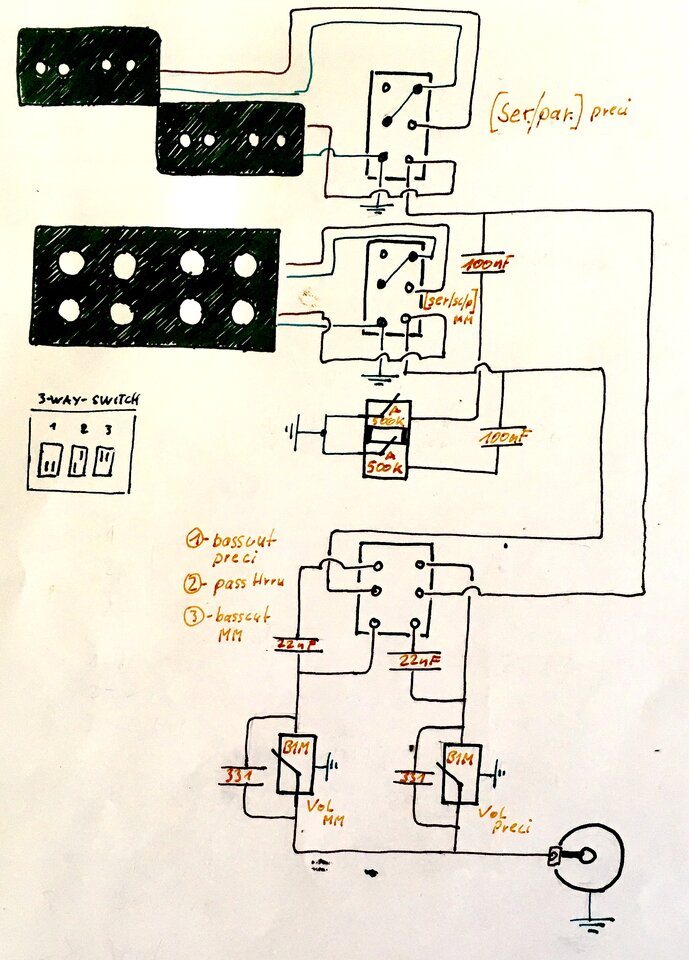 [ser./par.] preci
100nF
[ser/sc/p]
MM
3-WAY-SWITCH
1 2 3
A
500K
A
500K
100nF
①-basscut
preci
②-pass thru
③-basscut
MM
22nF
22nF
B1M
331
Vol
MM
B1M
331
Vol
Preci